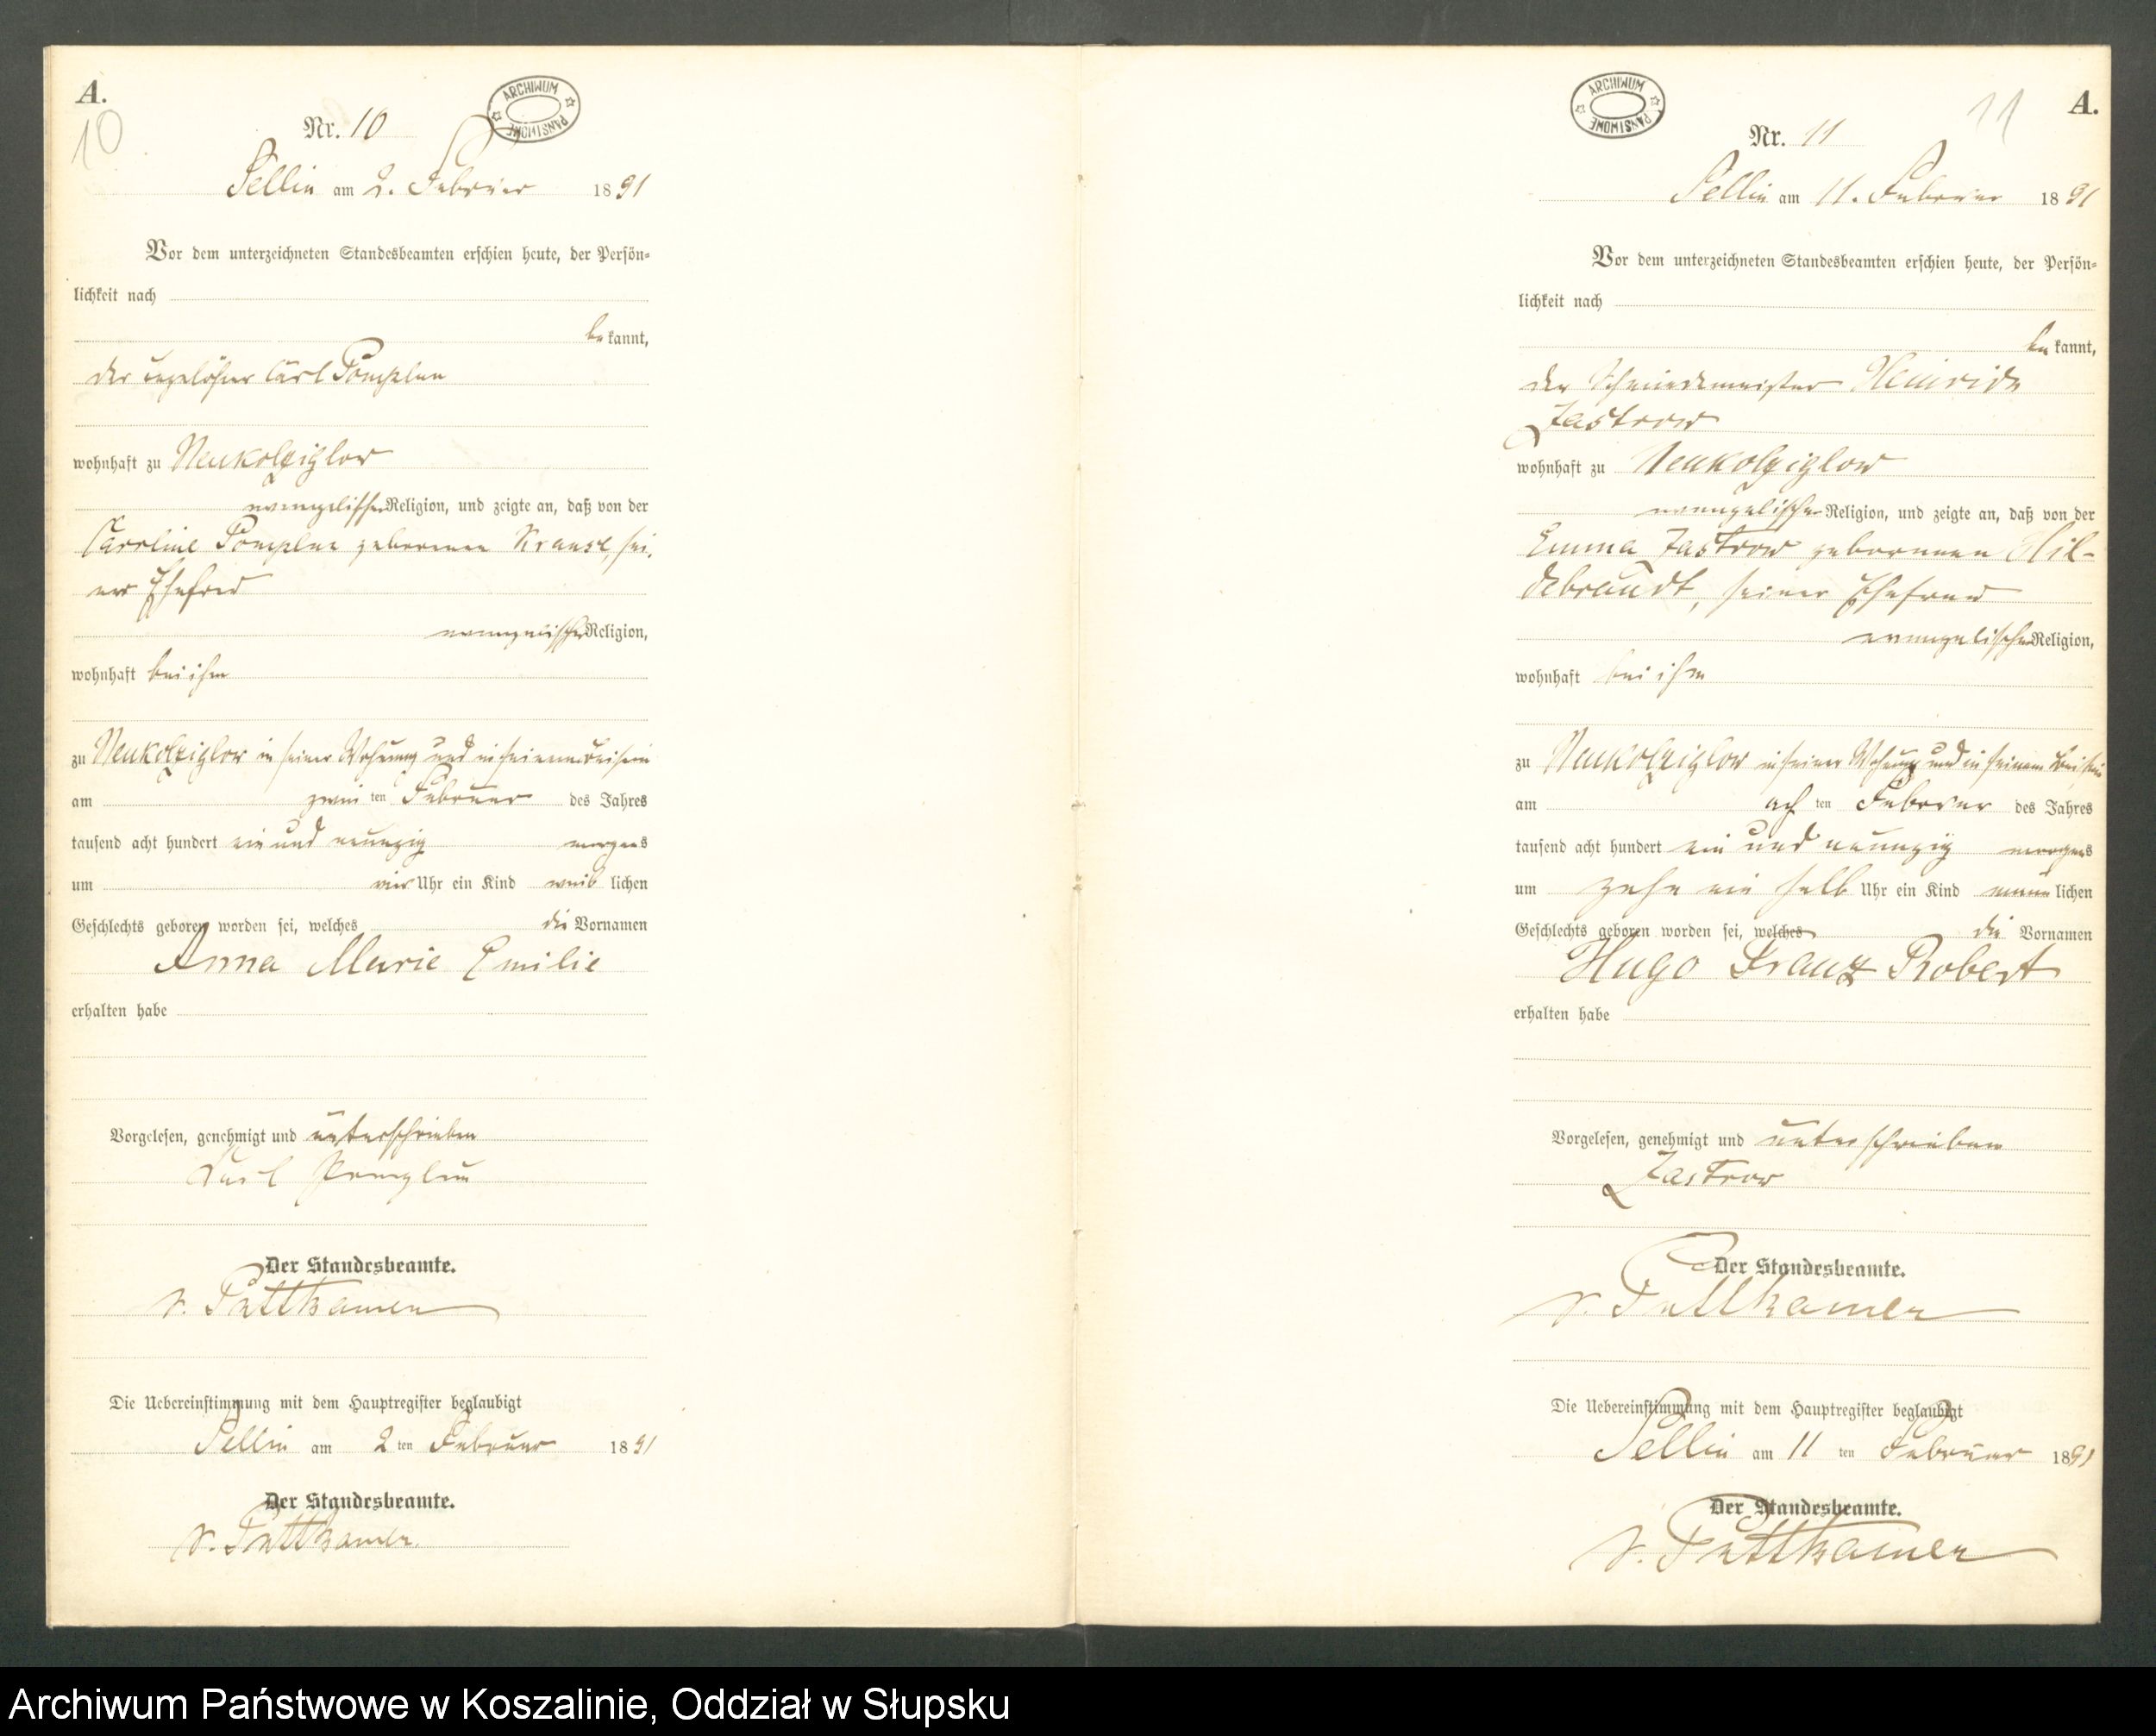 A.
10
ARCHIWUM PAŃSTWOWE
Nr. 10
Sellin am 2. Februar 1891
Vor dem unterzeichneten Standesbeamten erschien heute, der Persön-
lichkeit nach
be kannt,
der Tagelöhner Carl Pomplun
wohnhaft zu Neukolziglow
evangelischer Religion, und zeigte an, daß von der
Caroline Pomplun geborenen Krause, sei-
ner Ehefrau
evangelischer Religion,
wohnhaft bei ihm
zu Neukolziglow in seiner Wohnung und in seinem Beisein
am zwei ten Februar des Jahres
tausend acht hundert ein und neunzig morgens
um vier Uhr ein Kind weib lichen
Geschlechts geboren worden sei, welches die Vornamen
Anna Marie Emilie
erhalten habe
Vorgelesen, genehmigt und unterschrieben
Carl Pomplun
Der Standesbeamte.
v. Puttkamer
Die Uebereinstimmung mit dem Hauptregister beglaubigt
Sellin am 2 ten Februar 1891
Der Standesbeamte.
v. Puttkamer.
ARCHIWUM PAŃSTWOWE
11
A.
Nr. 11
Sellin am 11. Februar 1891
Vor dem unterzeichneten Standesbeamten erschien heute, der Persön-
lichkeit nach
be kannt,
der Schmiedemeister Heinrich
Zastrow
wohnhaft zu Neukolziglow
evangelischer Religion, und zeigte an, daß von der
Emma Zastrow geborenen Hil-
debrandt, seiner Ehefrau
evangelischer Religion,
wohnhaft bei ihm
zu Neukolziglow in seiner Wohnung und in seinem Beisein
am ach ten Februar des Jahres
tausend acht hundert ein und neunzig morgens
um zehn ein halb Uhr ein Kind männ lichen
Geschlechts geboren worden sei, welches die Vornamen
Hugo Franz Robert
erhalten habe
Vorgelesen, genehmigt und unterschrieben
Zastrow
Der Standesbeamte.
v. Puttkamer
Die Uebereinstimmung mit dem Hauptregister beglaubigt
Sellin am 11 ten Februar 1891
Der Standesbeamte.
v. Puttkamer
Archiwum Państwowe w Koszalinie, Oddział w Słupsku